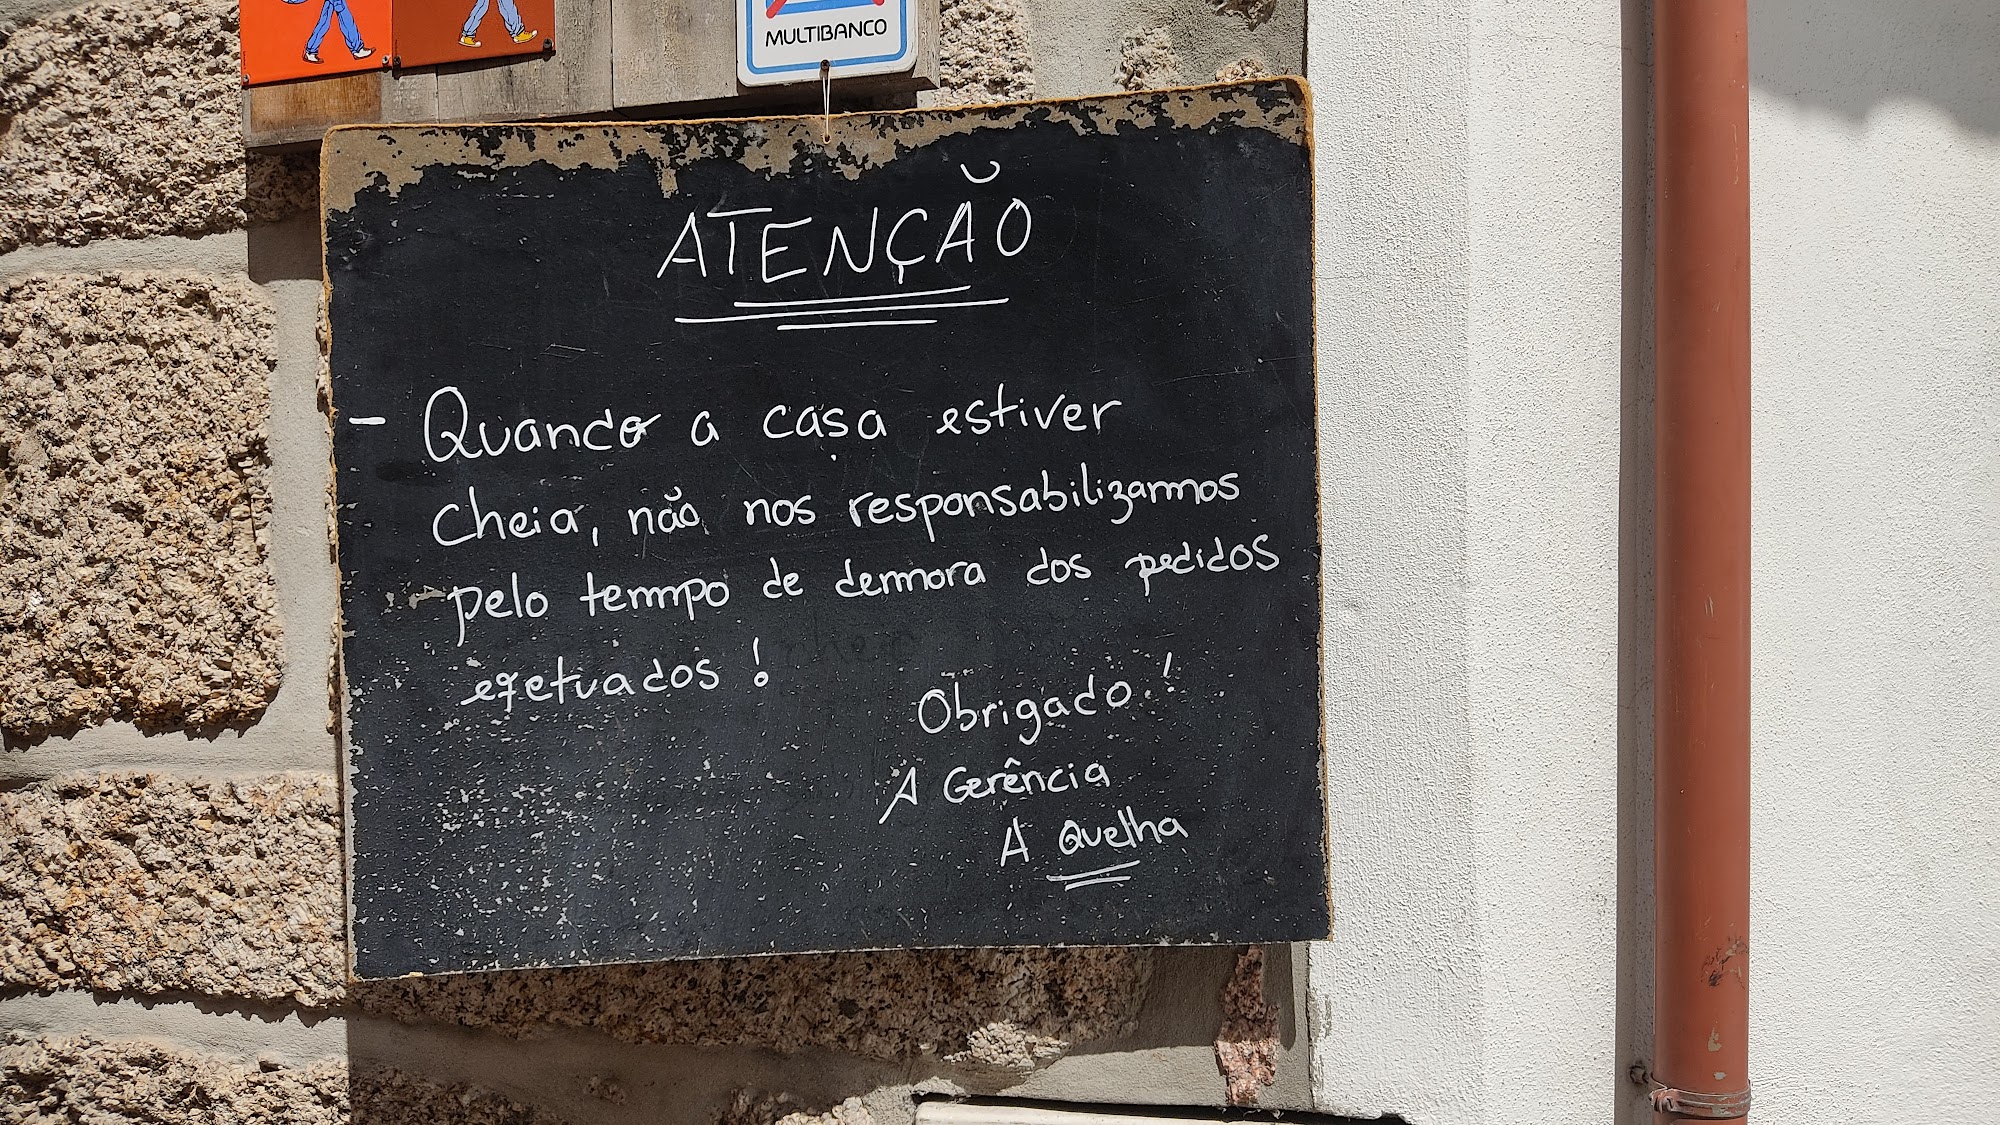 MULTIBANCO
ATENÇÃO
- Quando a casa estiver
cheia, não nos responsabilizamos
pelo tempo de demora dos pedidos
efetuados !
Obrigado !
A Gerência
A Quelha